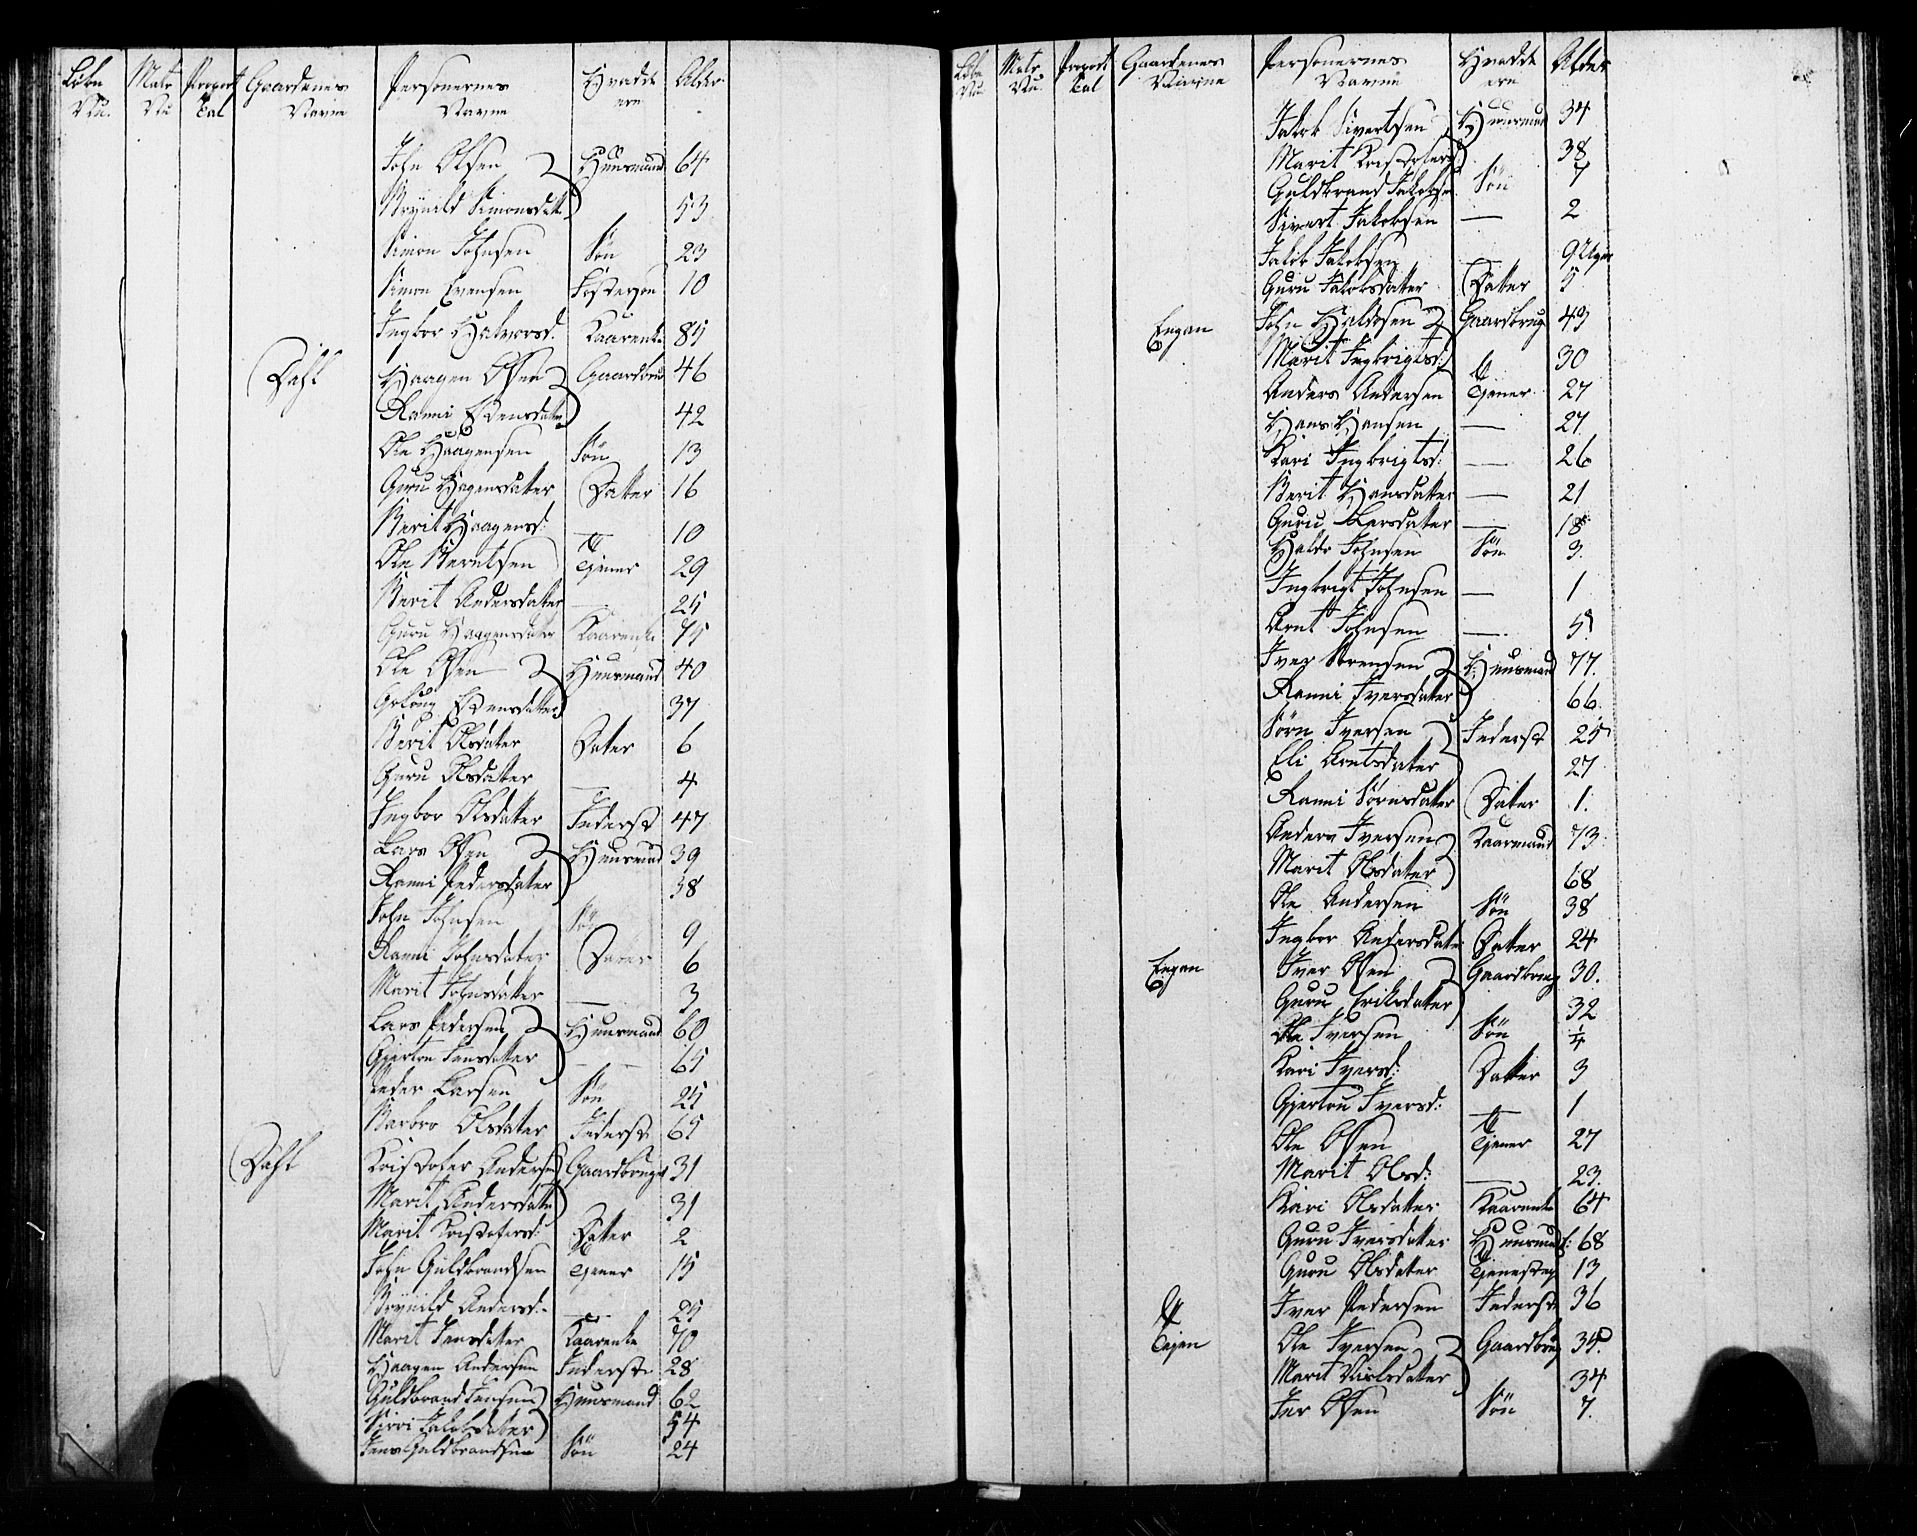 Löbe Nu. Matr Nu Proport Tal Gaardenes Navne Personernes Navne Hvadde ere Alder
John Olsen Huusmand 64
Brynild Simonsdatt 53
Simon Johnsen Søn 23
Simon Evensen Fosterson 10
Ingbor Halvorsd. Kaarenke 85
Dahl Haagen Olsen Gaardbru 46
Ranni Estensdatter 42
Ole Haagensen Søn 13
Guru Hagensdatter Datter 16
Berit Haagensd: — 10
Ole Berntsen Tjener 29
Berit Andersdatter — 25
Guru Haagensdatter Kaarenke 75
Ole Olsen Huusmand 40
Estensdatter 37
Berit Olsdater Dater 6
Guru Olsdatter — 4
Ingbor Olsdatter Inderst 47
Lars Olsen Huusmand 39
Ranni Pedersdater 38
John Johnsen Sø 9
Ranni Johnsdater Dater 6
Marit Johnsdatter — 3
Lars Pedersen Huusmand 60
Gjertou Jensdatter — — 65
Peder Larsen Søn 25
Barbro Olsdater Inderst 65
Dahl Kristofer Andersen Gaardbruger 31
Marit Andersdatter 31
Marit Kristofersd: Dater 2
John Guldbrandsen Tjener 15
Brynild Andersd: — 25
Marit Jensdatter Kaarenke 70
Haagen Andersen Inderst 28
Guldbrand Jensen Huusmand 62
Sirri Jakobsdater 54
Jens Guldbrandsen Søn 24
Löbe Nu Matr Nu. Proport Tal Gaardenes Navne Personernes Navne Hvadde ere Alder
Jakob Sivertsen Huusmand 34
Marit Kristofersd 38
Guldbrand Jakobsen Søn 7
Sivert Jakobsen — 2
Jakob Jakobsen — 9 Uger
Guru Jakobsdatter Datter 5
Engan John Haldosen Gaardbrug 43
Marit Ingbrigtsd: 30
Anders Andersen Tjener 27
Hans Hansen — 27
Kari Ingbrigtsd: — 26
Berit Hansdatter — 21
Guru Larsdatter — 18
Haldo Johnsen Søn 3.
Ingbrigt Johnsen — 1
Arnt Johnsen — 5
Iver Sørensen Huusmand 77.
Ranni Iversdatter 66.
Sørn Iversen Inderst 25
Eli Arntsdater 27
Ranni Sørnsdatter Dater 1.
Anders Iversen Kaarmand 73.
Marit Olsdatter 68
Ole Andersen Søn 38
Ingbor Andersdater Datter 24
Engan Iver Olsen Gaardbrug 30.
Guru Eriksdatter 32
Ole Iversen Søn 1/4
Kari Iversd: Datter 3
Gjertou Iversd: — 1
Ole Olsen Tjener 27
Marit Olsd: — 23.
Kari Olsdatter Kaarenke 64
Guru Iversdatter 68
Guru Olsdater 13
Iver Pedersen Inderst 36
Ole Iversen Gaardbrug 35.
Marit Nielsdatter 34
Olsen Søn 7.